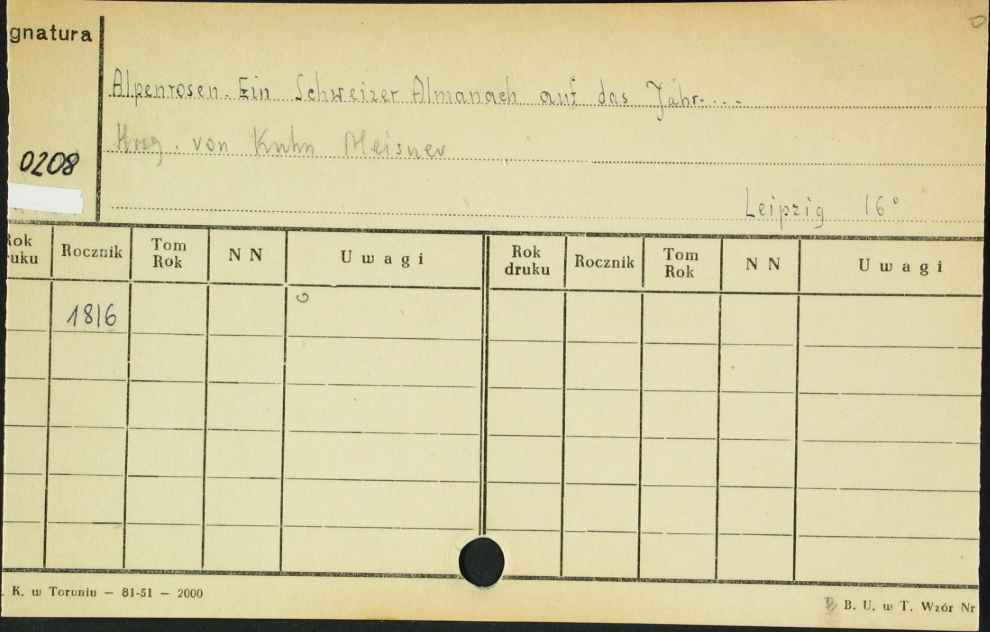 gnatura
Alpenrosen. Ein Schweizer Almanach auf das Jahr....
Hrsg. von Kuhn Meisner
0208
Leipzig 16°
Rok druku Rocznik Tom Rok N N Uwagi Rok druku Rocznik Tom Rok N N Uwagi
1816
. K. w Toruniu — 81-51 — 2000
B. U. w T. Wzór Nr